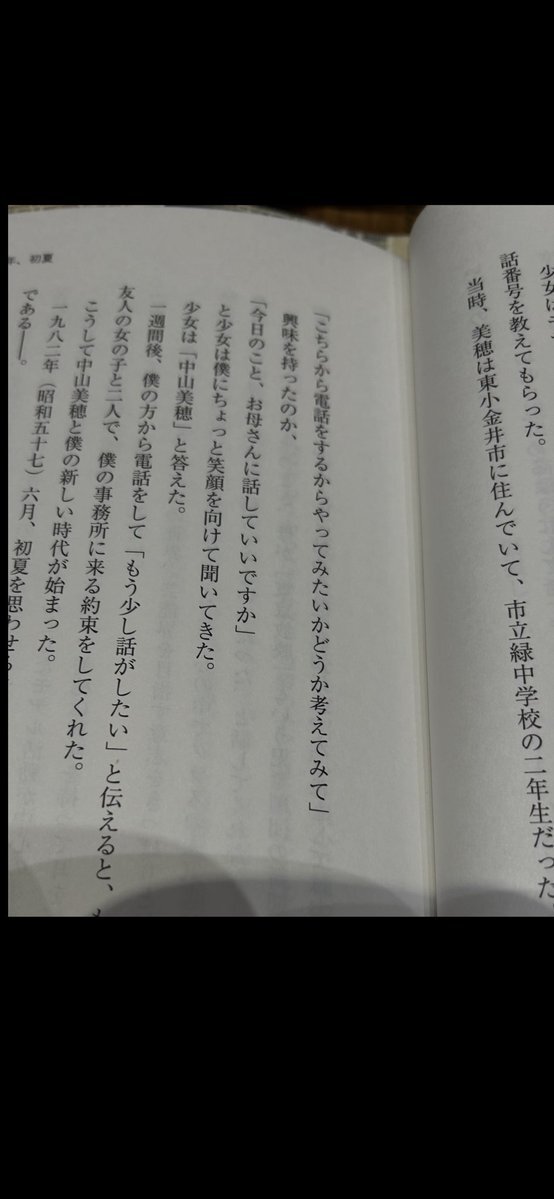 少女は
話番号を教えてもらった。
当時、美穂は東小金井市に住んでいて、市立緑中学校の二年生だった
「こちらから電話をするからやってみたいかどうか考えてみて」
興味を持ったのか、
「今日のこと、お母さんに話していいですか」
と少女は僕にちょっと笑顔を向けて聞いてきた。
少女は「中山美穂」と答えた。
一週間後、僕の方から電話をして「もう少し話がしたい」と伝えると、
友人の女の子と二人で、僕の事務所に来る約束をしてくれた。
こうして中山美穂と僕の新しい時代が始まった。
一九八二年（昭和五十七）六月、初夏を思わせる
である――。
年、初夏